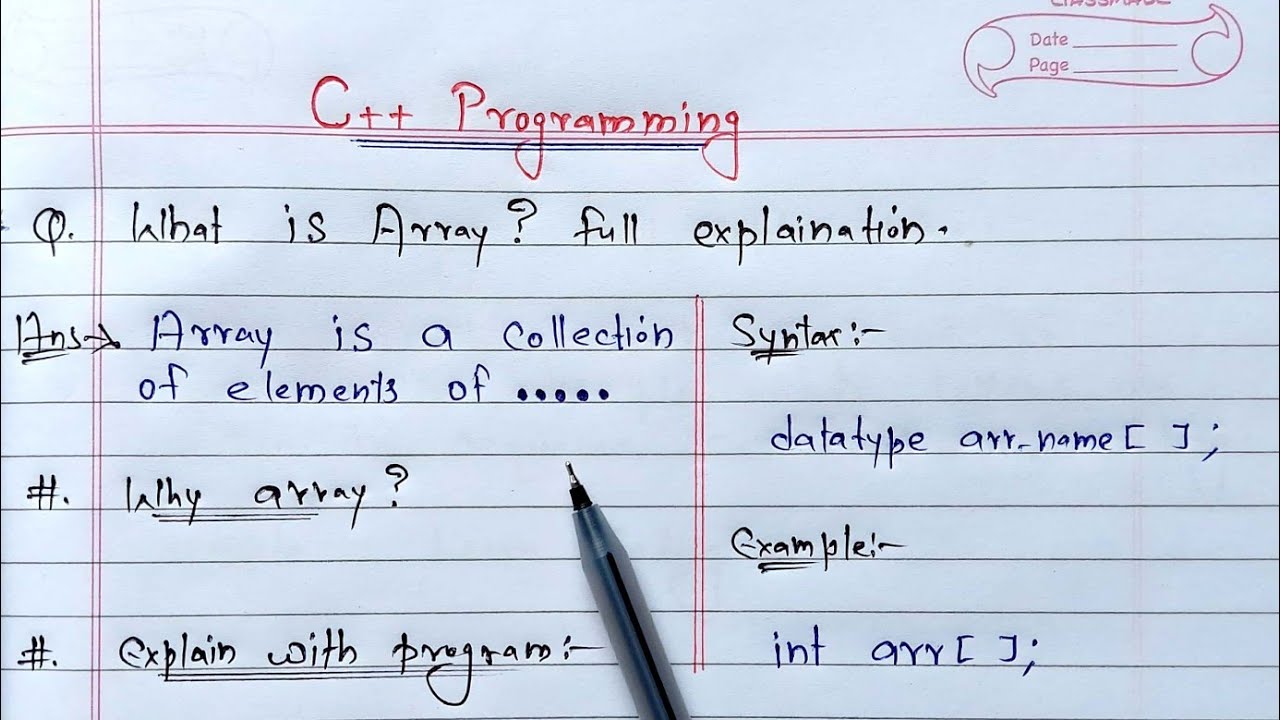 CLASSMATE
Date
Page
C++ Programming
Q. What is Array? full explaination.
Ans→ Array is a collection
of elements of .....
#. Why array?
#. Explain with program:-
Syntax:-
datatype arr_name[ ];
Example:-
int arr[ ];